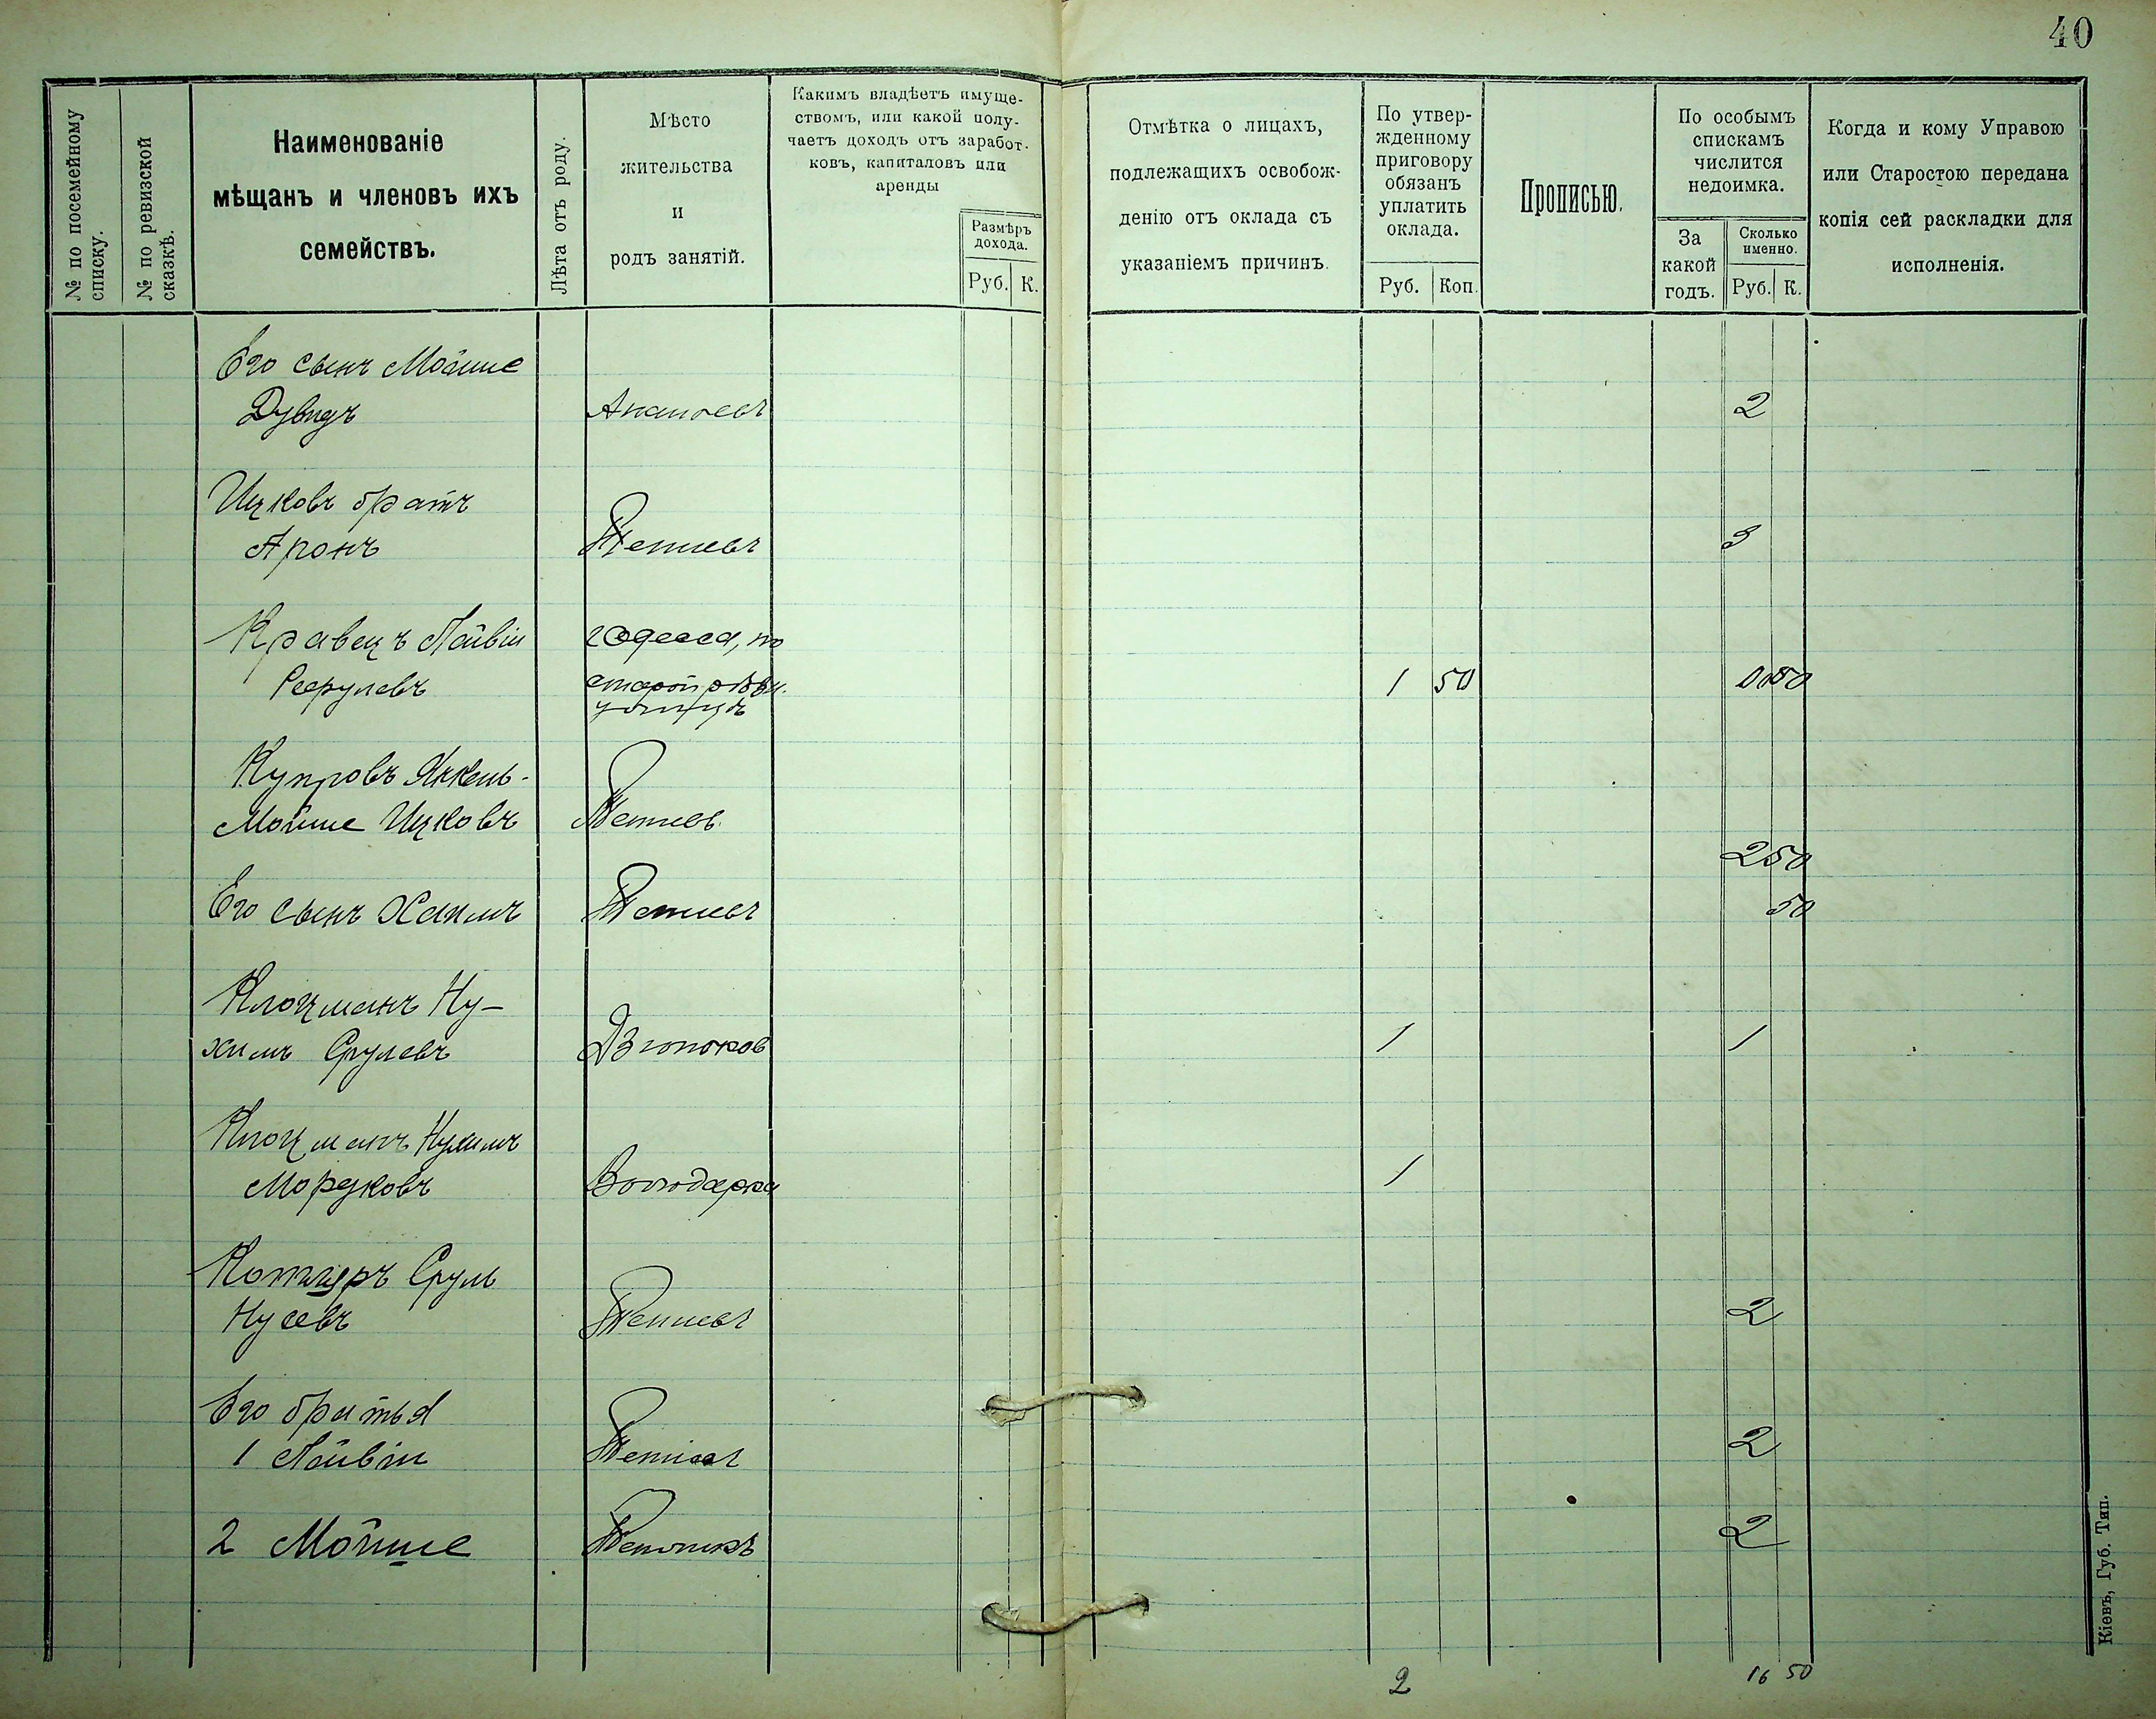 40
№ по посемейному
списку.
№ по ревизской
сказкѣ.
Наименованіе
мѣщанъ и членовъ ихъ
семействъ.
Лѣта отъ роду.
Мѣсто
жительства
и
родъ занятій.
Какимъ владѣетъ имуще-
ствомъ, или какой полу-
чаетъ доходъ отъ заработ-
ковъ, капиталовъ или
аренды
Размѣръ
дохода.
Руб. К.
Отмѣтка о лицахъ,
подлежащихъ освобож-
денію отъ оклада съ
указаніемъ причинъ.
По утвер-
жденному
приговору
обязанъ
уплатить
оклада.
Руб. Коп.
Прописью.
По особымъ
спискамъ
числится
недоимка.
За
какой
годъ.
Сколько
именно.
Руб. К.
Когда и кому Управою
или Старостою передана
копія сей раскладки для
исполненія.
Его сынъ Мойше
Дувидъ Ананьевъ 2
Ицковъ братъ
Аронъ Тетіевъ 3
Кравецъ Лейвіи г Одесса, по
Сруревъ старой 1 50
улицѣ
Купровъ Янкель-
Мойше Ицковъ Тетіевъ
2 50
Его сынъ Хаимъ Тетіевъ 50
Клоцманъ Ну-
химъ Срулевъ Дзюньков 1 1
Клоцманъ Нухимъ
Мордковъ Володарка 1
Котляръ Сруль
Нусевъ Тетіевъ 2
Его братья
1 Лейвіи Тетіевъ 2
2 Мойше 2
2 16 50
Кіевъ, Губ. Тип.